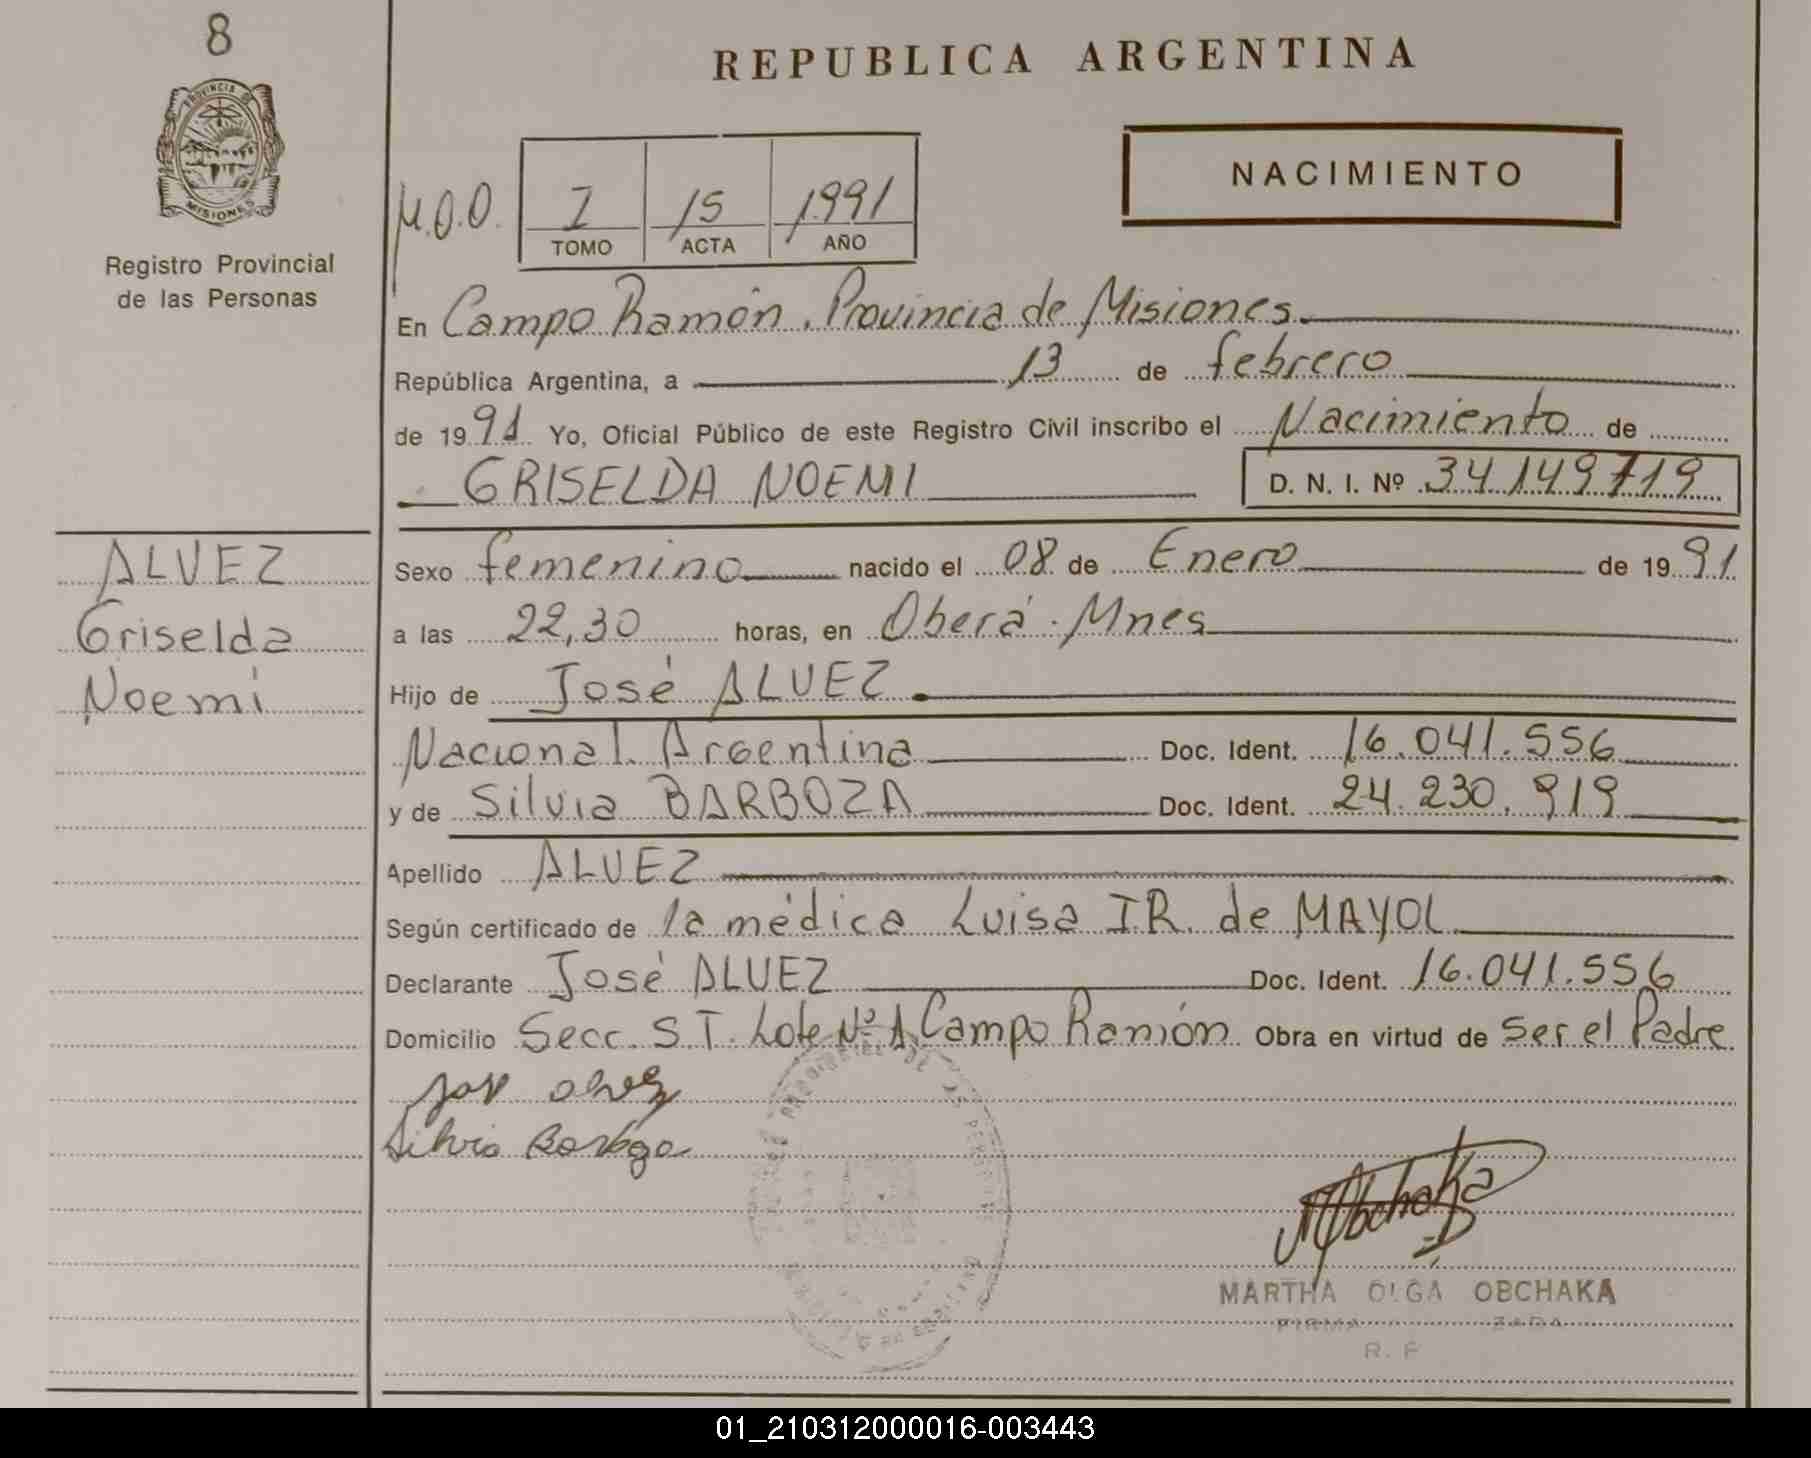 8
REPUBLICA ARGENTINA
PROVINCIA DE
MISIONES
Registro Provincial
de las Personas
NACIMIENTO
M.O.O. I 15 1991
TOMO ACTA AÑO
En Campo Ramón, Provincia de Misiones
República Argentina, a 13 de febrero
de 1991 Yo, Oficial Público de este Registro Civil inscribo el Nacimiento de
GRISELDA NOEMI D. N. I. Nº 34.149719
ALVEZ
Griselda
Noemi
Sexo femenino nacido el 08 de Enero de 1991
a las 22,30 horas, en Oberá - Mnes
Hijo de José ALVEZ
Nacional. Argentina Doc. Ident. 16.041.556
y de Silvia BARBOZA Doc. Ident. 24.230.919
Apellido ALVEZ
Según certificado de la médica Luisa I.R. de MAYOL
Declarante José ALVEZ Doc. Ident. 16.041.556
Domicilio Secc. S.T. Lote Nº A Campo Ramón Obra en virtud de Ser el Padre
Silvia
MObchaka
MARTHA OLGA OBCHAKA
R. P
01_210312000016-003443